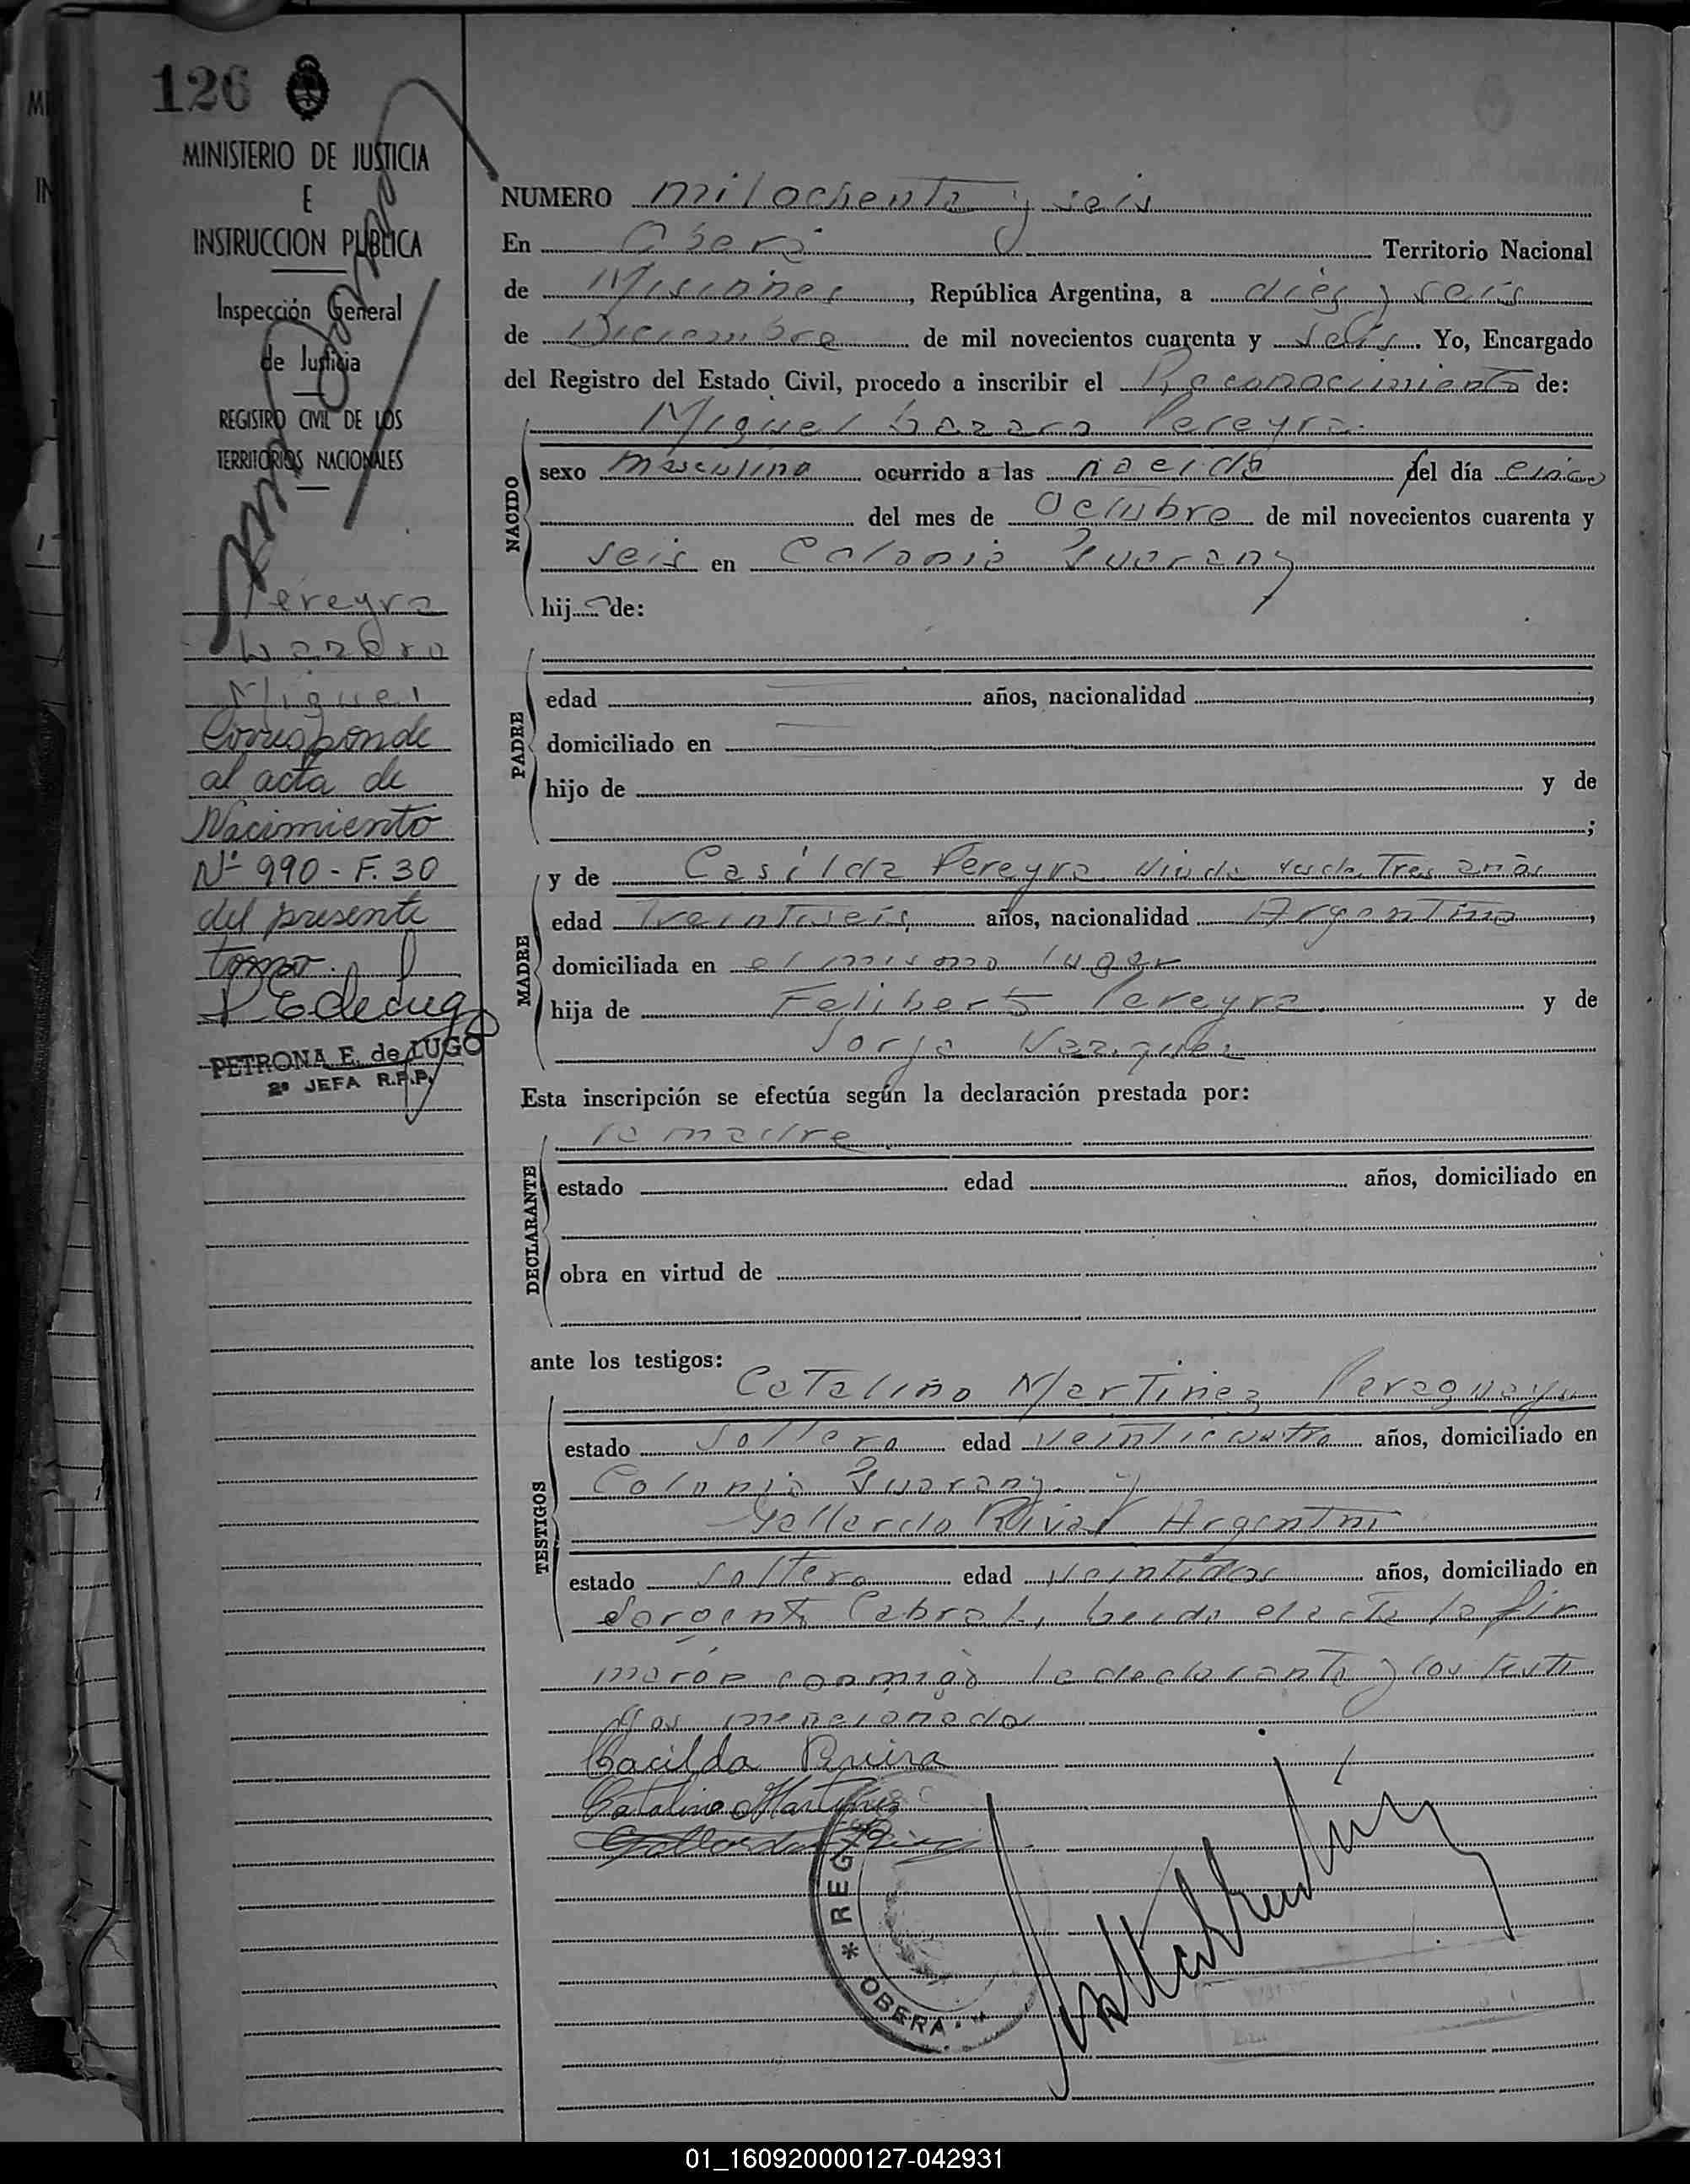 126
MINISTERIO DE JUSTICIA
E
INSTRUCCION PUBLICA
Inspección General
de Justicia
REGISTRO CIVIL DE LOS
TERRITORIOS NACIONALES
Pereyra
Lazaro
Miguel
Corresponde
al acta de
Nacimiento
Nº 990 - F. 30
del presente
tomo.
PEdeLugo
PETRONA E. de LUGO
2ª JEFA R.P.P.
NUMERO mil ochenta y seis
En Oberá Territorio Nacional
de Misiones, República Argentina, a dies y seis
de Diciembre de mil novecientos cuarenta y seis. Yo, Encargado
del Registro del Estado Civil, procedo a inscribir el Reconocimiento de:
Miguel Lazaro Pereyra
NACIDO
sexo masculino ocurrido a las nacido del día cinco
del mes de Octubre de mil novecientos cuarenta y
seis en Colonia Guarany
hijo de:
PADRE
edad años, nacionalidad ,
domiciliado en
hijo de y de
;
MADRE
y de Casilda Pereyra viuda desde Tres años
edad treintiseis, años, nacionalidad Argentina,
domiciliada en el mismo lugar
hija de Feliberto Pereyra y de
Jorja Vazquez
Esta inscripción se efectúa según la declaración prestada por:
la madre
DECLARANTE
estado edad años, domiciliado en
obra en virtud de
ante los testigos:
Catalino Martinez Paraguayo
TESTIGOS
estado Soltero edad veinticuatro años, domiciliado en
Colonia Guarany y
Gallardo Rivas Argentino
estado soltero edad veintidos años, domiciliado en
Sargento Cabral, Leida el acta la fir
maron conmigo la declarante y los testi
gos mencionados
Cacilda
Catalino Martinez
REG
* OBERA
01_160920000127-042931